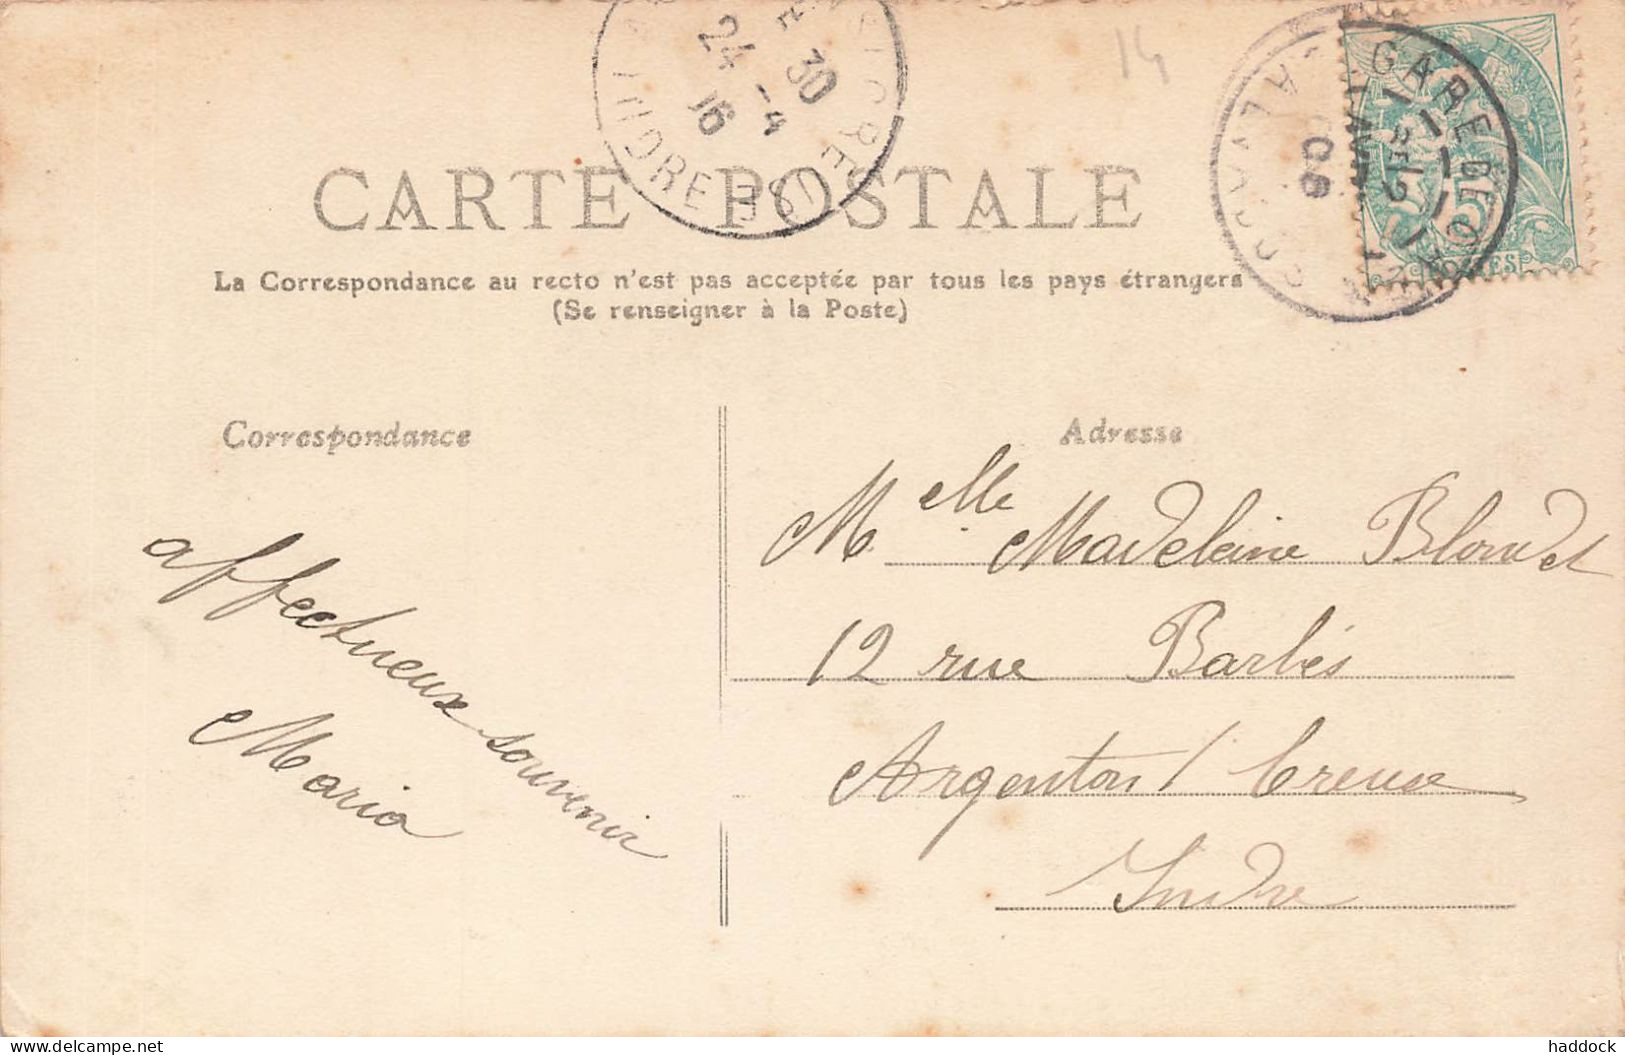 14
CARTE POSTALE
La Correspondance au recto n'est pas acceptée par tous les pays étrangers
(Se renseigner à la Poste)
Correspondance
affectueux souvenir
Maria
Adresse
Melle Madeleine Blondet
12 rue Barbés
Argenton / Creuse
Indre
24 -4
GARE DE
08
INDRE
haddock